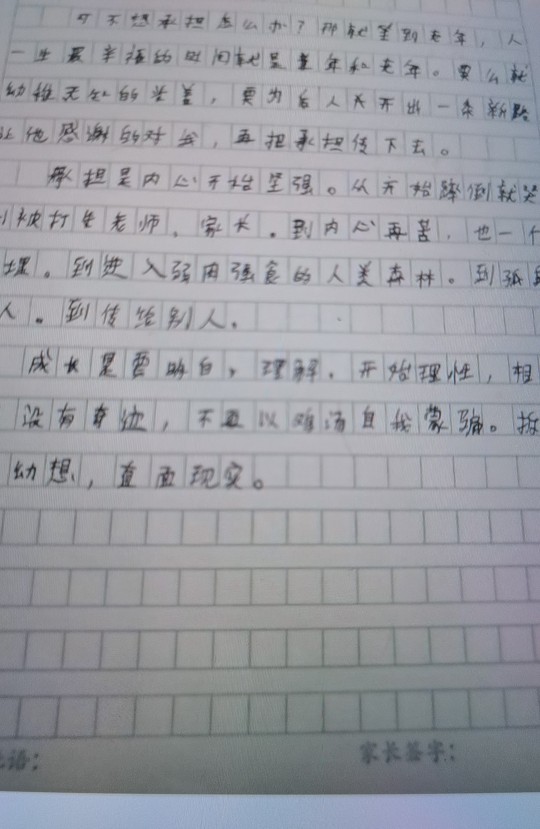 可不想承担怎么办？那就等到老年，人
一生最幸福的时间就是童年和老年。要么就
幼稚无知的坐着，要为后人关开出一条新路
让他感谢的对会，再把承担传下去。
承担是内心开始坚强。从开始蹲倒就哭
到被打告老师、家长。到内心再苦，也一个
埋。到进入弱肉强食的人类森林。到孤
人。到传给别人。
成长是要明白，理解，开始理性，相
没有奇迹，不再以鸡汤自我蒙骗。拆
幼想，直面现实。
语：
家长签字：